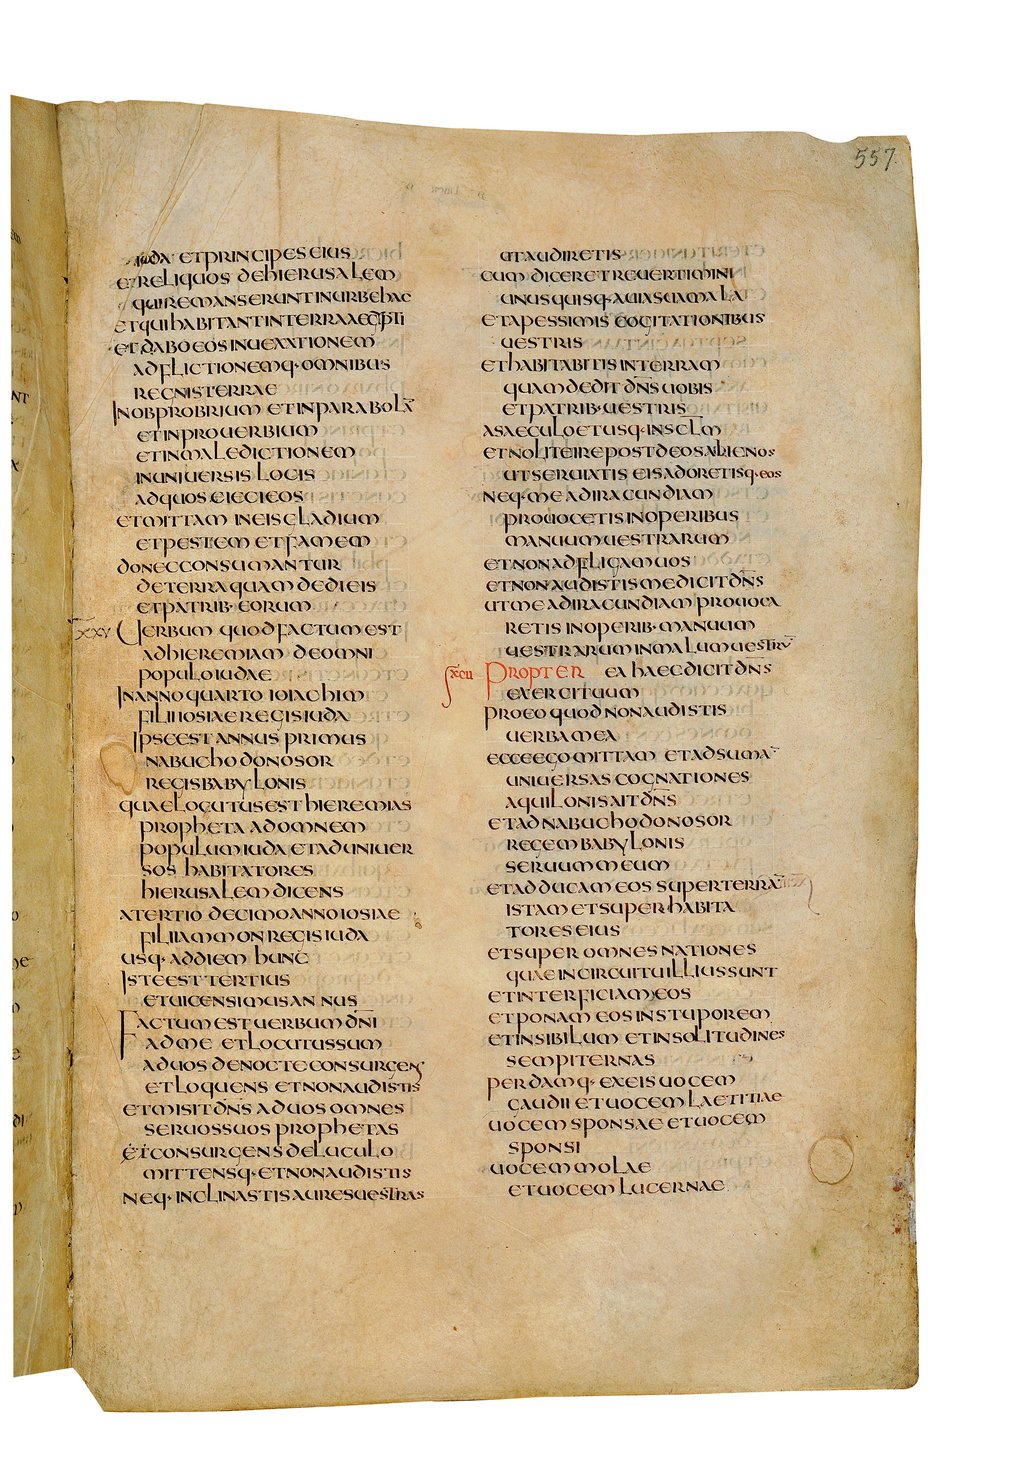 557.
iuda et principes eius
et reliquos de hierusalem
qui remanserunt in urbe hac
et qui habitant in terra aegypti
et dabo eos in uexationem
adflictionemq· omnibus
regnis terrae
In obprobrium et in parabola̅
et in prouerbium
et in maledictionem
in uniuersis locis
ad quos eieci eos
et mittam in eis gladium
et pestem et famem
donec consumantur
de terra quam dedi eis
et patrib· eorum
xxv Uerbum quod factum est
ad hieremiam de omni
populo iudae
In anno quarto ioiachim
filii iosiae regis iuda
Ipse est annus primus
nabuchodonosor
regis babylonis
quae locutus est hieremias
propheta ad omnem
populum iuda et ad uniuer
sos habitatores
hierusalem dicens
a tertio decimo anno iosiae
filii ammon regis iuda
usq· ad diem hunc
Iste est tertius
et uicensimus annus
Factum est uerbum dn̅i
ad me et locutus sum
ad uos de nocte consurgens
et loquens et non audistis
et misit dn̅s ad uos omnes
seruos suos prophetas
et consurgens deluculo
mittensq· et non audistis
neq· inclinastis aures uestras
ut audiretis
cum diceret reuertimini
unusquisq· a uia sua mala
et a pessimis cogitationibus
uestris
et habitabitis in terram
quam dedit dn̅s uobis
et patrib· uestris
a saeculo et usq· in sclm̅
et nolite ire post deos alienos
ut seruiatis eis adoretisq· eos
neq· me ad iracundiam
prouocetis in operibus
manuum uestrarum
et non adfligam uos
et non audistis me dicit dn̅s
ut me ad iracundiam prouoca
retis in operib· manuum
uestrarum in malum uestru̅
Propter ea haec dicit dn̅s
exercituum
pro eo quod non audistis
uerba mea
ecce ego mittam et adsuma̅
uniuersas cognationes
aquilonis ait dn̅s
et ad nabuchodonosor
regem babylonis
seruum meum
et adducam eos super terra̅
istam et super habita
tores eius
et super omnes nationes
quae in circuitu illius sunt
et interficiam eos
et ponam eos in stuporem
et in sibilum et in solitudines
sempiternas
perdamq· ex eis uocem
gaudii et uocem laetitiae
uocem sponsae et uocem
sponsi
uocem molae
et uocem lucernae